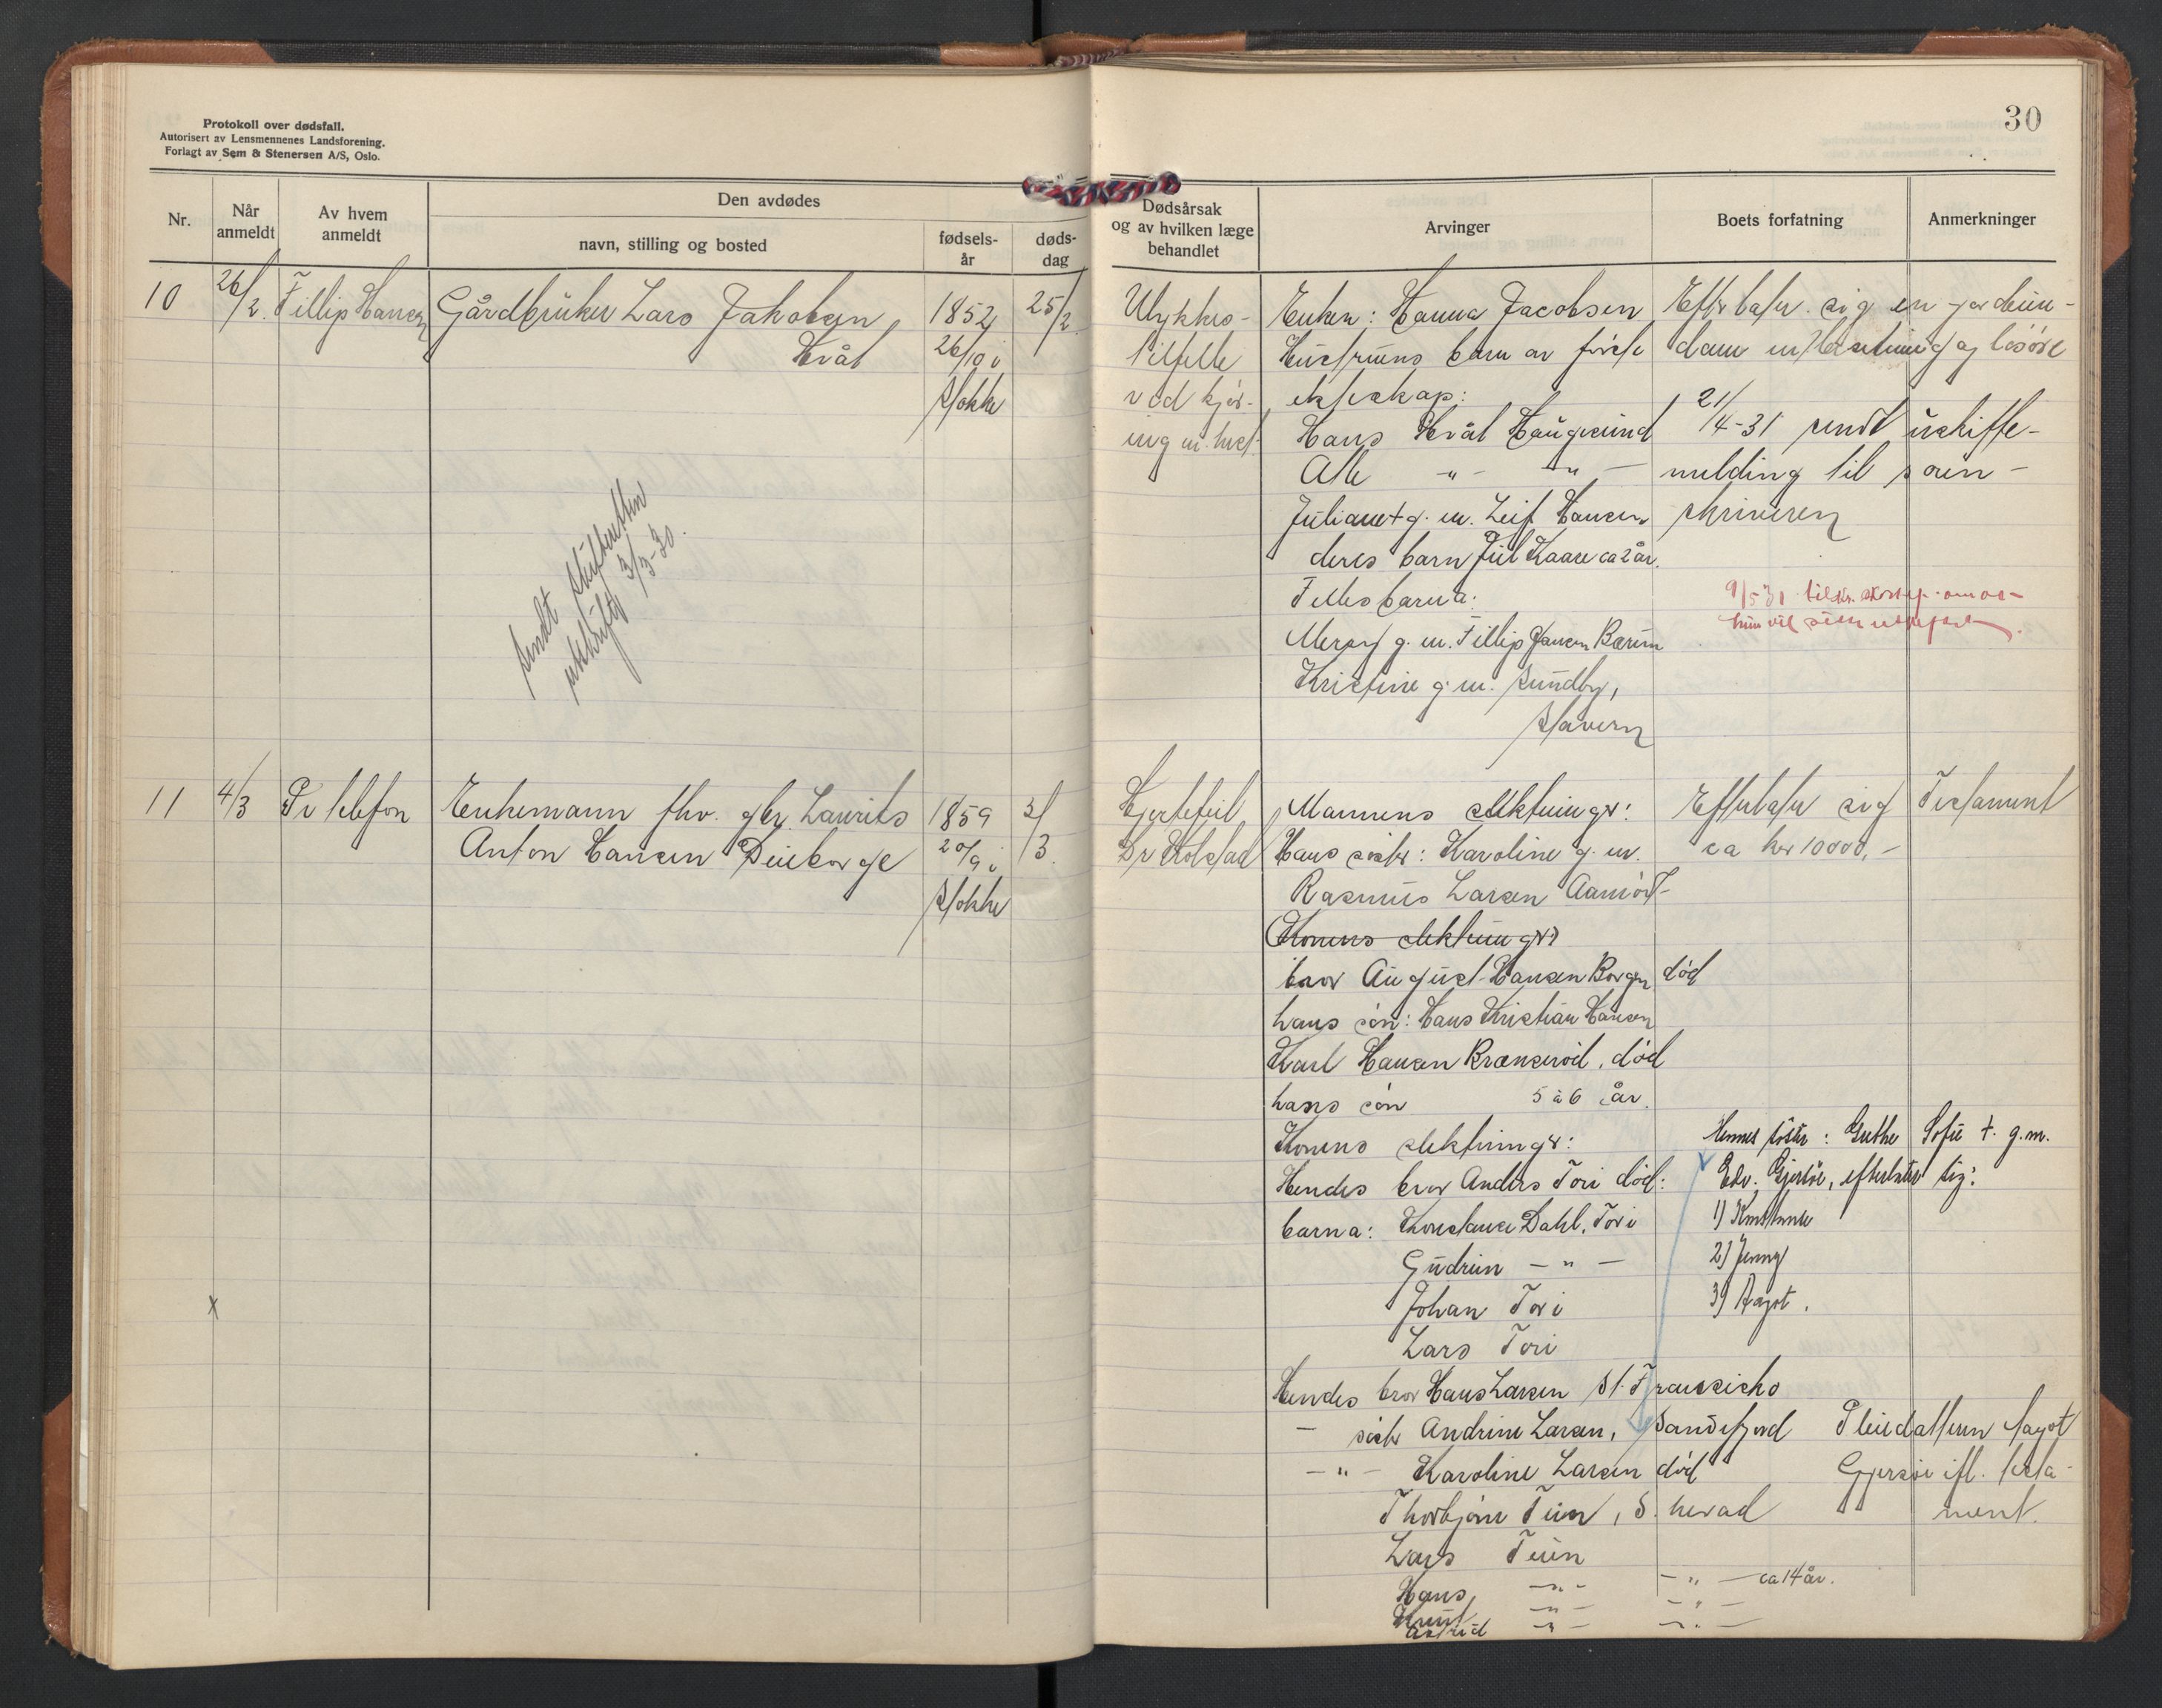 Protokoll over dødsfall.
Autorisert av Lensmennenes Landsforening.
Forlagt av Sem & Stenersen A/S, Oslo.
30
Nr.
Når anmeldt
Av hvem anmeldt
Den avdødes
navn, stilling og bosted
fødselsår
dødsdag
Dødsårsak og av hvilken læge behandlet
Arvinger
Boets forfatning
Anmerkninger
10
26/2.
Fillip Hansen
Gårdbruker Lars Jakobsen,
Hvål
1852
26/10 i
Stokke
25/2.
Ulykkes-
tilfelle
ved kjør-
ing m. hest.
Enken: Hanna Jacobsen
Hustruens barn av første
ekteskap:
Hans Hvål Haugesund
Alle -"- -"-
Juliane † g. m. Leif Hansen
deres barn Juel Kaare ca 2 år.
Felles barna:
Mercy g. m. Fillip Hansen Bærum
Kristine g. m. Sundby,
Stavern
Efterlater sig en jordeien-
dom m/besetning og løsøre
21/4-31 sendt uskifte-
melding til soren-
skriveren
9/5 31
Sendt skifteretten
utskrift 3/3-30.
11
4/3
Pr telefon
Enkemann fhv. gbr. Laurits
Anton Hansen Dueborge
1859
20/9 i
Stokke
3/3.
Hjertefeil
Dr Kolstad
Mannens slektninger:
Hans søster: Karoline g. m.
Rasmus Larsen Aamødt
Konens slektninger:
bror August Hansen Borgen død
hans søn: Hans Kristian Hansen
Karl Hansen Brænserød, død
hans søn 5 à 6 år.
Konens slektninger:
Hendes bror Anders Tori død:
barna: Konstance Dahl, Tori
Gudrun - " -
Johan Tori
Lars Tori
Hendes bror Hans Larsen St. Fransisko
- søster Andrine Larsen, Sandefjord
- " - Karoline Larsen død
Thorbjørn Tuen, S. herad
Lars Tuen
Hans -"- -"- ca 14 år.
Knut -"- -"-
Astrid -"- -"-
Efterlater sig
ca kr 10000,-
Testament
Hennes søster: Grethe Sofie †. g.m.
Edv. Gjersøe, efterlater sig:
1) Konstanse
2) Jenny
3) Aagot.
Pleiedatteren Aagot
Gjersøe ifl. testa-
ment.
x